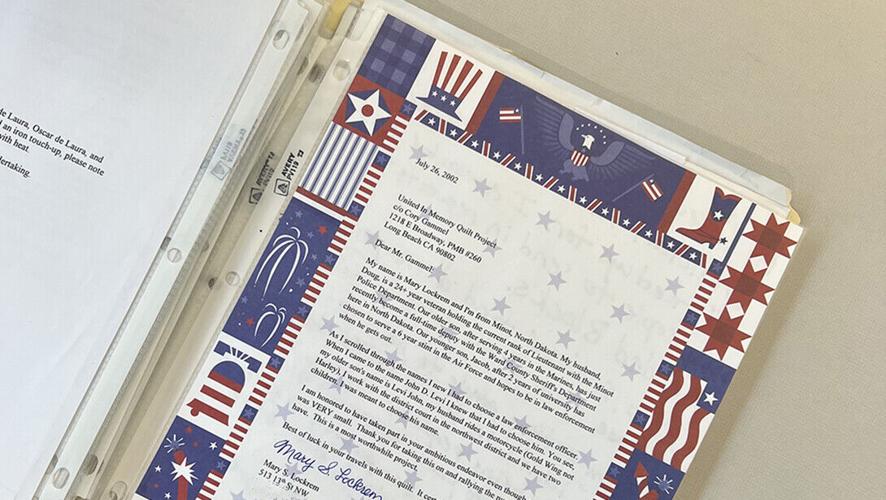 de Laura, Oscar de Laura, and
an iron touch-up, please note
with heat.
dertaking.
AVERY
PV119
AVERY
PV119
July 26, 2002
United In Memory Quilt Project
c/o Cory Gammel
1218 E Broadway, PMB #260
Long Beach CA 90802
Dear Mr. Gammel:
My name is Mary Lockrem and I'm from Minot, North Dakota. My husband,
Doug, is a 24+ year veteran holding the current rank of Lieutenant with the Minot
Police Department. Our older son, after serving 4 years in the Marines, has just
recently become a full-time deputy with the Ward County Sheriff's Department
here in North Dakota. Our younger son, Jacob, after 2 years of university has
chosen to serve a 6 year stint in the Air Force and hopes to be in law enforcement
when he gets out.
As I scrolled through the names I new I had to choose a law enforcement officer.
When I came to the name John D. Levi I knew that I had to choose him. You see,
my older son's name is Levi John, my husband rides a motorcycle (Gold Wing not
Harley), I work with the district court in the northwest district and we have two
children. I was meant to choose his name.
I am honored to have taken part in your ambitious endeavor even though
was VERY small. Thank you for taking this on and rallying the
have. This is a most worthwhile project.
Best of luck in your travels with this quilt. It
Mary S. Lockrem
Mary S. Lockrem
513 13th St NW